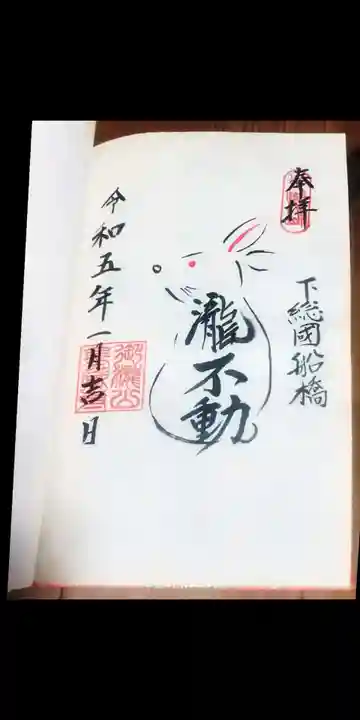 奉拝
下総國船橋
瀧不動
令和五年一月吉日
御瀧山